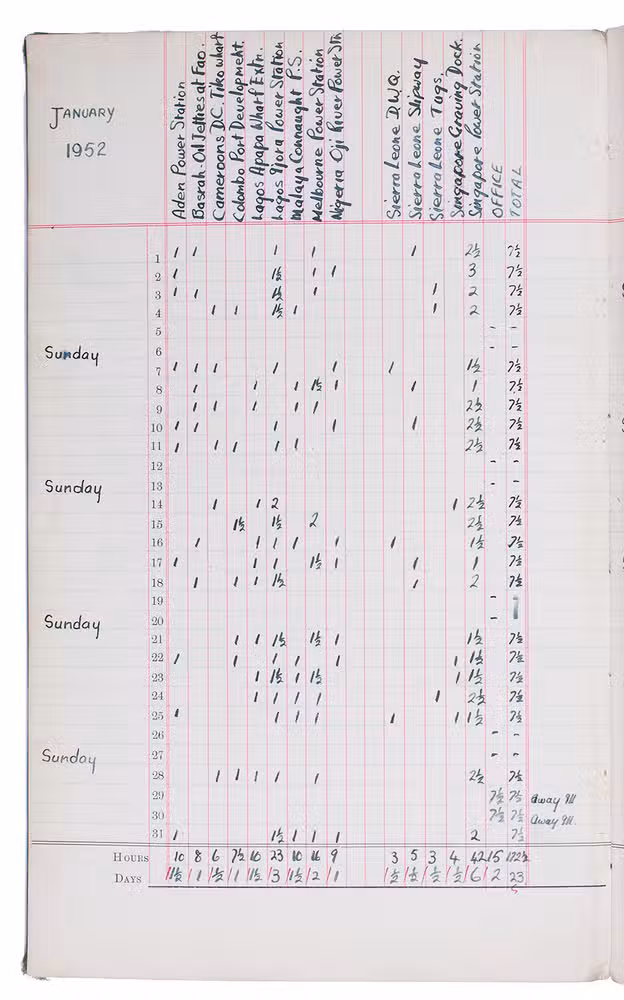 JANUARY
1952
Aden Power Station
Basrah. Oil Jetties at Fao.
Cameroons D.C. Tiko wharf
Colombo Port Development.
Lagos Apapa Wharf Extn.
Lagos Ijora Power Station
Malaya Connaught P.S.
Melbourne Power Station
Nigeria Oji River Power Stn
Sierra Leone D.W.Q.
Sierra Leone Slipway
Sierra Leone Tugs.
Singapore Graving Dock.
Singapore Power Station
OFFICE
TOTAL
1 1 1 1 1 1 2½ 7½
2 1 1½ 1 1 3 7½
3 1 1 1½ 1 1 2 7½
4 1 1 1½ 1 1 2 7½
5 - -
Sunday 6 - -
7 1 1 1 1 1 1 1½ 7½
8 1 1 1 1½ 1 1 1 7½
9 1 1 1 1 1 2½ 7½
10 1 1 1 1 1 2½ 7½
11 1 1 1 1 1 2½ 7½
12 - -
Sunday 13 - -
14 1 1 2 1 2½ 7½
15 1½ 1½ 2 2½ 7½
16 1 1 1 1 1 1 1½ 7½
17 1 1 1 1½ 1 1 1 7½
18 1 1 1 1½ 1 2 7½
19 -
Sunday 20 -
21 1 1 1½ 1½ 1 1½ 7½
22 1 1 1 1 1 1 1½ 7½
23 1 1½ 1 1½ 1 1½ 7½
24 1 1 1 1 1 2½ 7½
25 1 1 1 1 1 1 1½ 7½
26 - -
Sunday 27 - -
28 1 1 1 1 1 2½ 7½
29 7½ 7½ away ill
30 7½ 7½ away ill.
31 1 1½ 1 1 1 2 7½
HOURS 10 8 6 7½ 10 23 10 16 9 3 5 3 4 42 15 172½
DAYS 1½ 1 1½ 1 1½ 3 1½ 2 1 ½ ½ ½ ½ 6 2 23